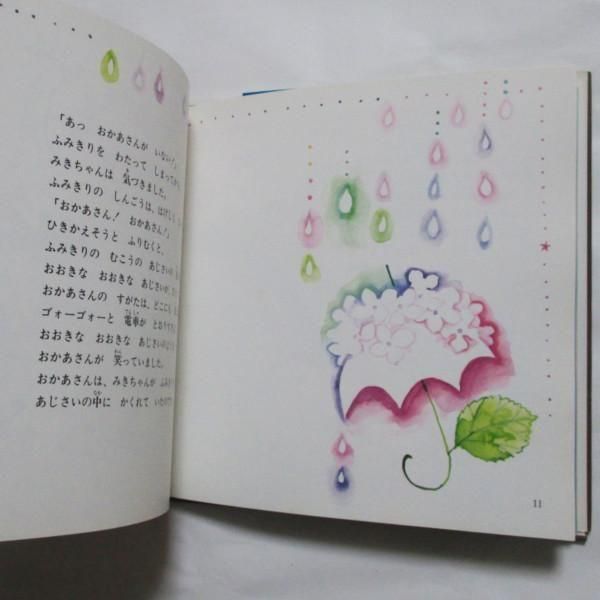 「あっ　おかあさんが　いない！」
ふみきりを　わたって　しまってから、
みきちゃんは　気づきました。
ふみきりの　しんごうは、はげしく
「おかあさん！　おかあさん！」
ひきかえそうと　ふりむくと、
ふみきりの　むこうの　あじさいの
おおきな　おおきな　あじさいが、
おかあさんの　すがたは、どこにも
ゴォーゴォーと　電車が　とおりすぎ
おおきな　おおきな　あじさいの
おかあさんが　笑っていました。
おかあさんは、みきちゃんが　ふみき
あじさいの中に　かくれて　いたの
11